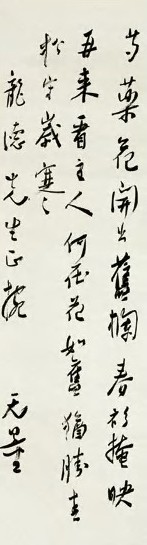 芍藥花開出舊欄春衫掩映
再来看主人何在花如舊猶勝青
松守歲寒
龍德先生正腕 无量